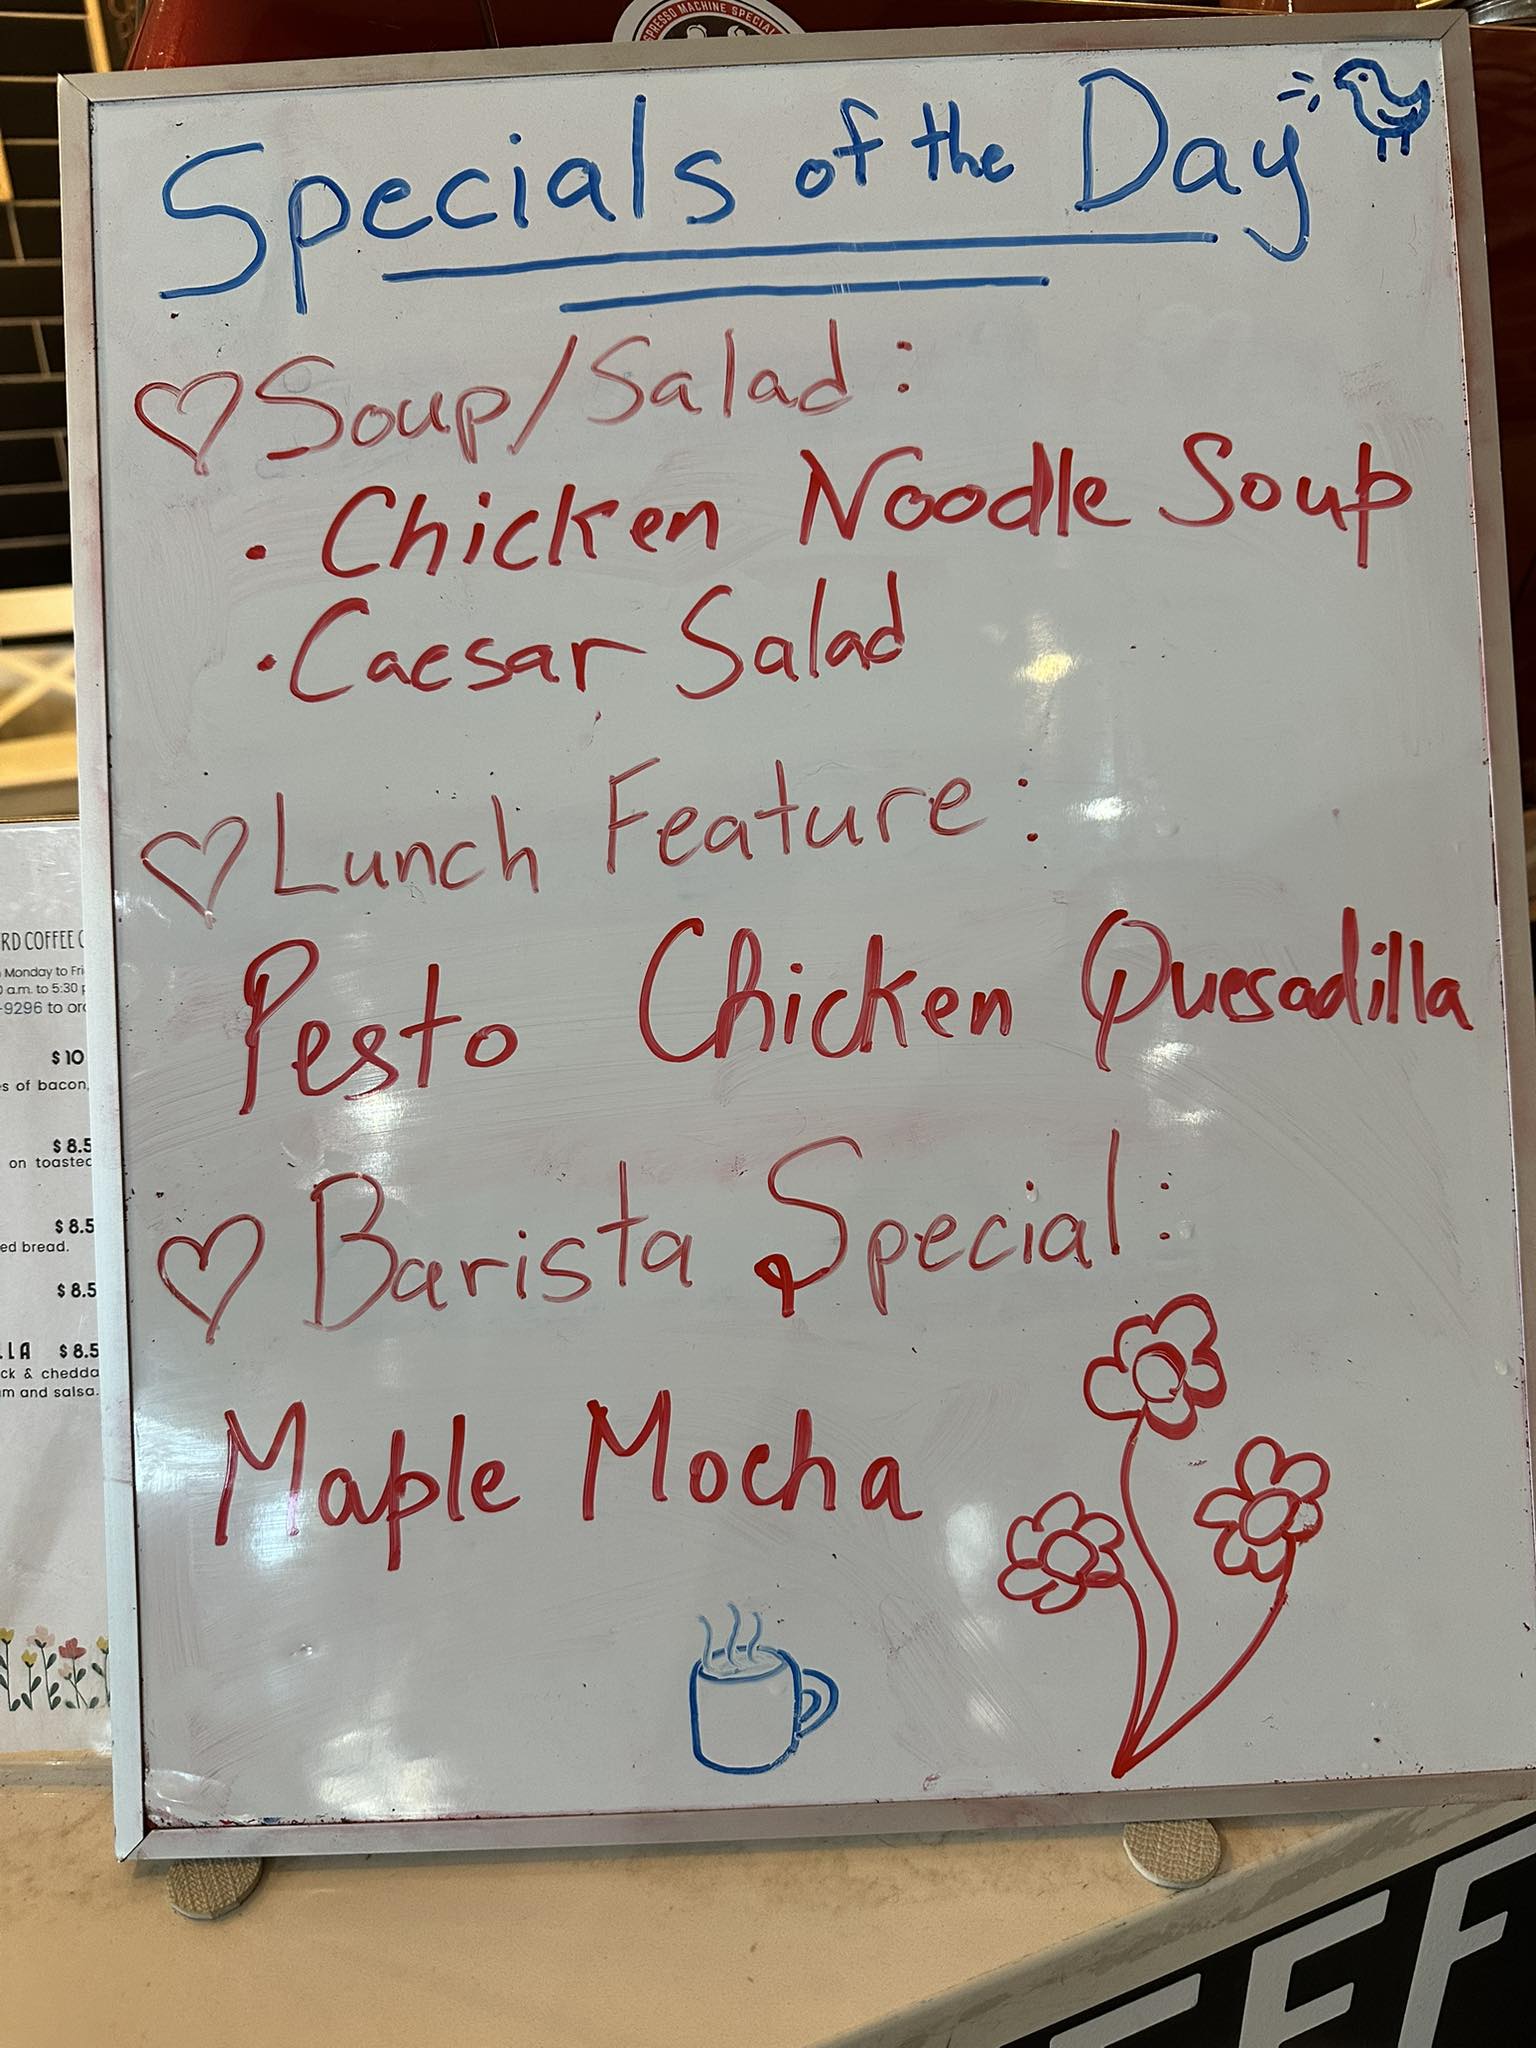 PRESSO MACHINE SPECIAL
Specials of the Day
Soup/Salad:
• Chicken Noodle Soup
• Caesar Salad
Lunch Feature:
Pesto Chicken Quesadilla
Barista Special:
Maple Mocha
RD COFFEE C
Monday to Fri
0 a.m. to 5:30 p
-9296 to ord
$10
es of bacon,
$8.5
on toasted
$8.5
ed bread.
$8.5
LLA $8.5
ck & chedda
m and salsa.